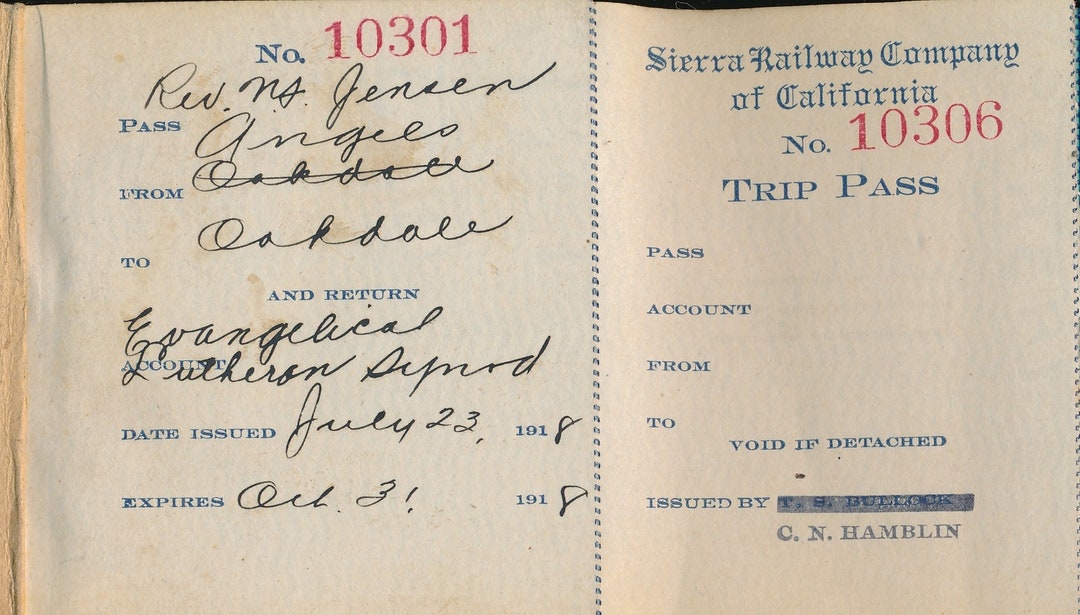 No. 10301
Rev. N.S. Jensen
PASS Angels
FROM Oakdale
TO Oakdale
AND RETURN
Evangelical
ACCOUNT Lutheran Synod
DATE ISSUED July 23, 1918
EXPIRES Oct. 31 1918
Sierra Railway Company
of California
No. 10306
TRIP PASS
PASS
ACCOUNT
FROM
TO
VOID IF DETACHED
ISSUED BY T. S. BULLOCK
C. N. HAMBLIN